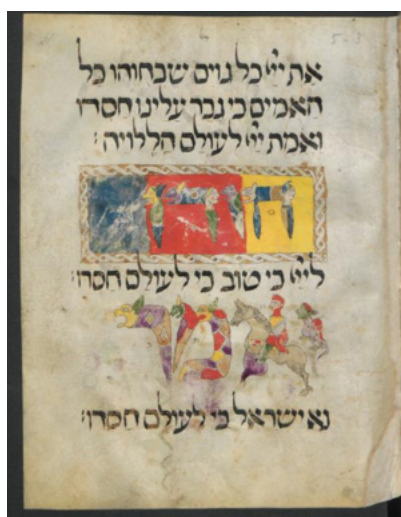 את ייי כל גוים שבחוהו כל
האמים כי גבר עלינו חסדו
ואמת ייי לעולם הללויה:
הודו
לייי כי טוב כי לעולם חסדו:
יאמר
נא ישראל כי לעולם חסדו: